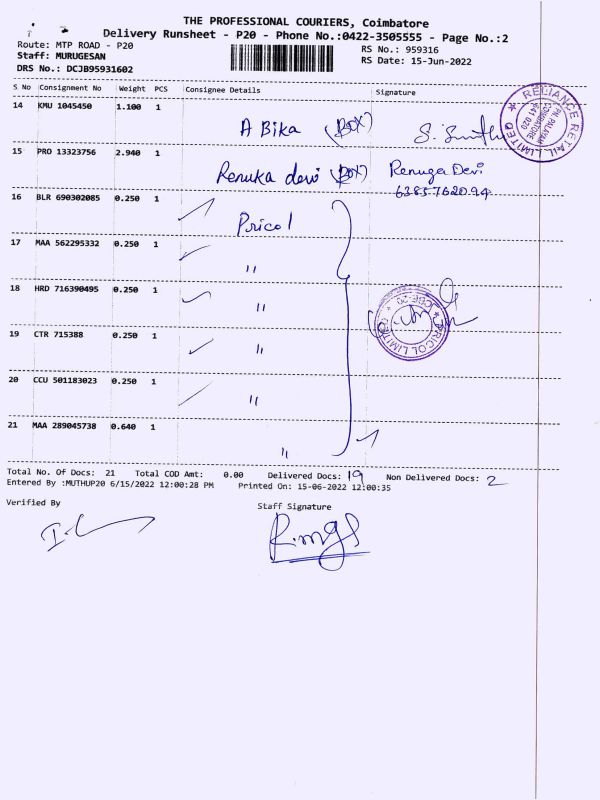 THE PROFESSIONAL COURIERS, Coimbatore
Delivery Runsheet - P20 - Phone No.:0422-3505555 - Page No.:2
Route: MTP ROAD - P20
RS No.: 959316
Staff: MURUGESAN
RS Date: 15-Jun-2022
DRS No.: DCJB95931602
S No Consignment No Weight PCS Consignee Details Signature
14 KMU 1045450 1.100 1
A Bika (BOX)
RELIANCE RETAIL LIMITED
COIMBATORE
641 020
15 PRO 13323756 2.940 1
Renuka devi (BOX) Renuga Devi
6385762094
16 BLR 690302085 0.250 1
Pricol
17 MAA 562295332 0.250 1
"
18 HRD 716390495 0.250 1
"
PRICOL LIMITED
CBE-20
19 CTR 715388 0.250 1
"
20 CCU 501183023 0.250 1
"
21 MAA 289045738 0.640 1
"
Total No. Of Docs: 21 Total COD Amt: 0.00 Delivered Docs: 19 Non Delivered Docs: 2
Entered By :MUTHUP20 6/15/2022 12:00:28 PM Printed On: 15-06-2022 12:00:35
Verified By Staff Signature